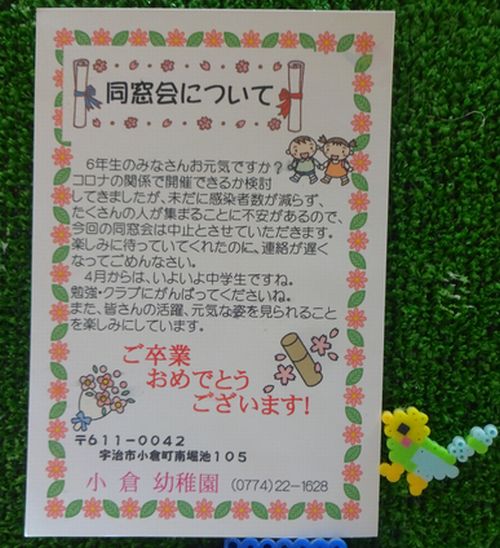 同窓会について
6年生のみなさんお元気ですか?
コロナの関係で開催できるか検討
してきましたが、未だに感染者数が減らず、
たくさんの人が集まることに不安があるので、
今回の同窓会は中止とさせていただきます。
楽しみに待っていてくれたのに、連絡が遅く
なってごめんなさい。
4月からは、いよいよ中学生ですね。
勉強・クラブにがんばってくださいね。
また、皆さんの活躍、元気な姿を見られること
を楽しみにしています。
ご卒業
おめでとう
ございます!
〒611-0042
宇治市小倉町南堀池105
小倉 幼稚園 (0774)22-1628